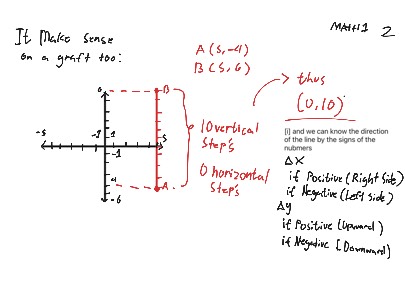 MATH1 2
It Make sense
on a graft too:
A (5, -4)
B (5, 6)
thus
(0, 10)
6 B
10 vertical
step's
0 horizontal
step's
-5 -1 1 5
-1
-4 A
-6
[i] and we can know the direction
of the line by the signs of the
nubmers
Δx
if Positive (Right side)
if Negative (Left side)
Δy
if Positive [Upward)
if Negative [Downward)